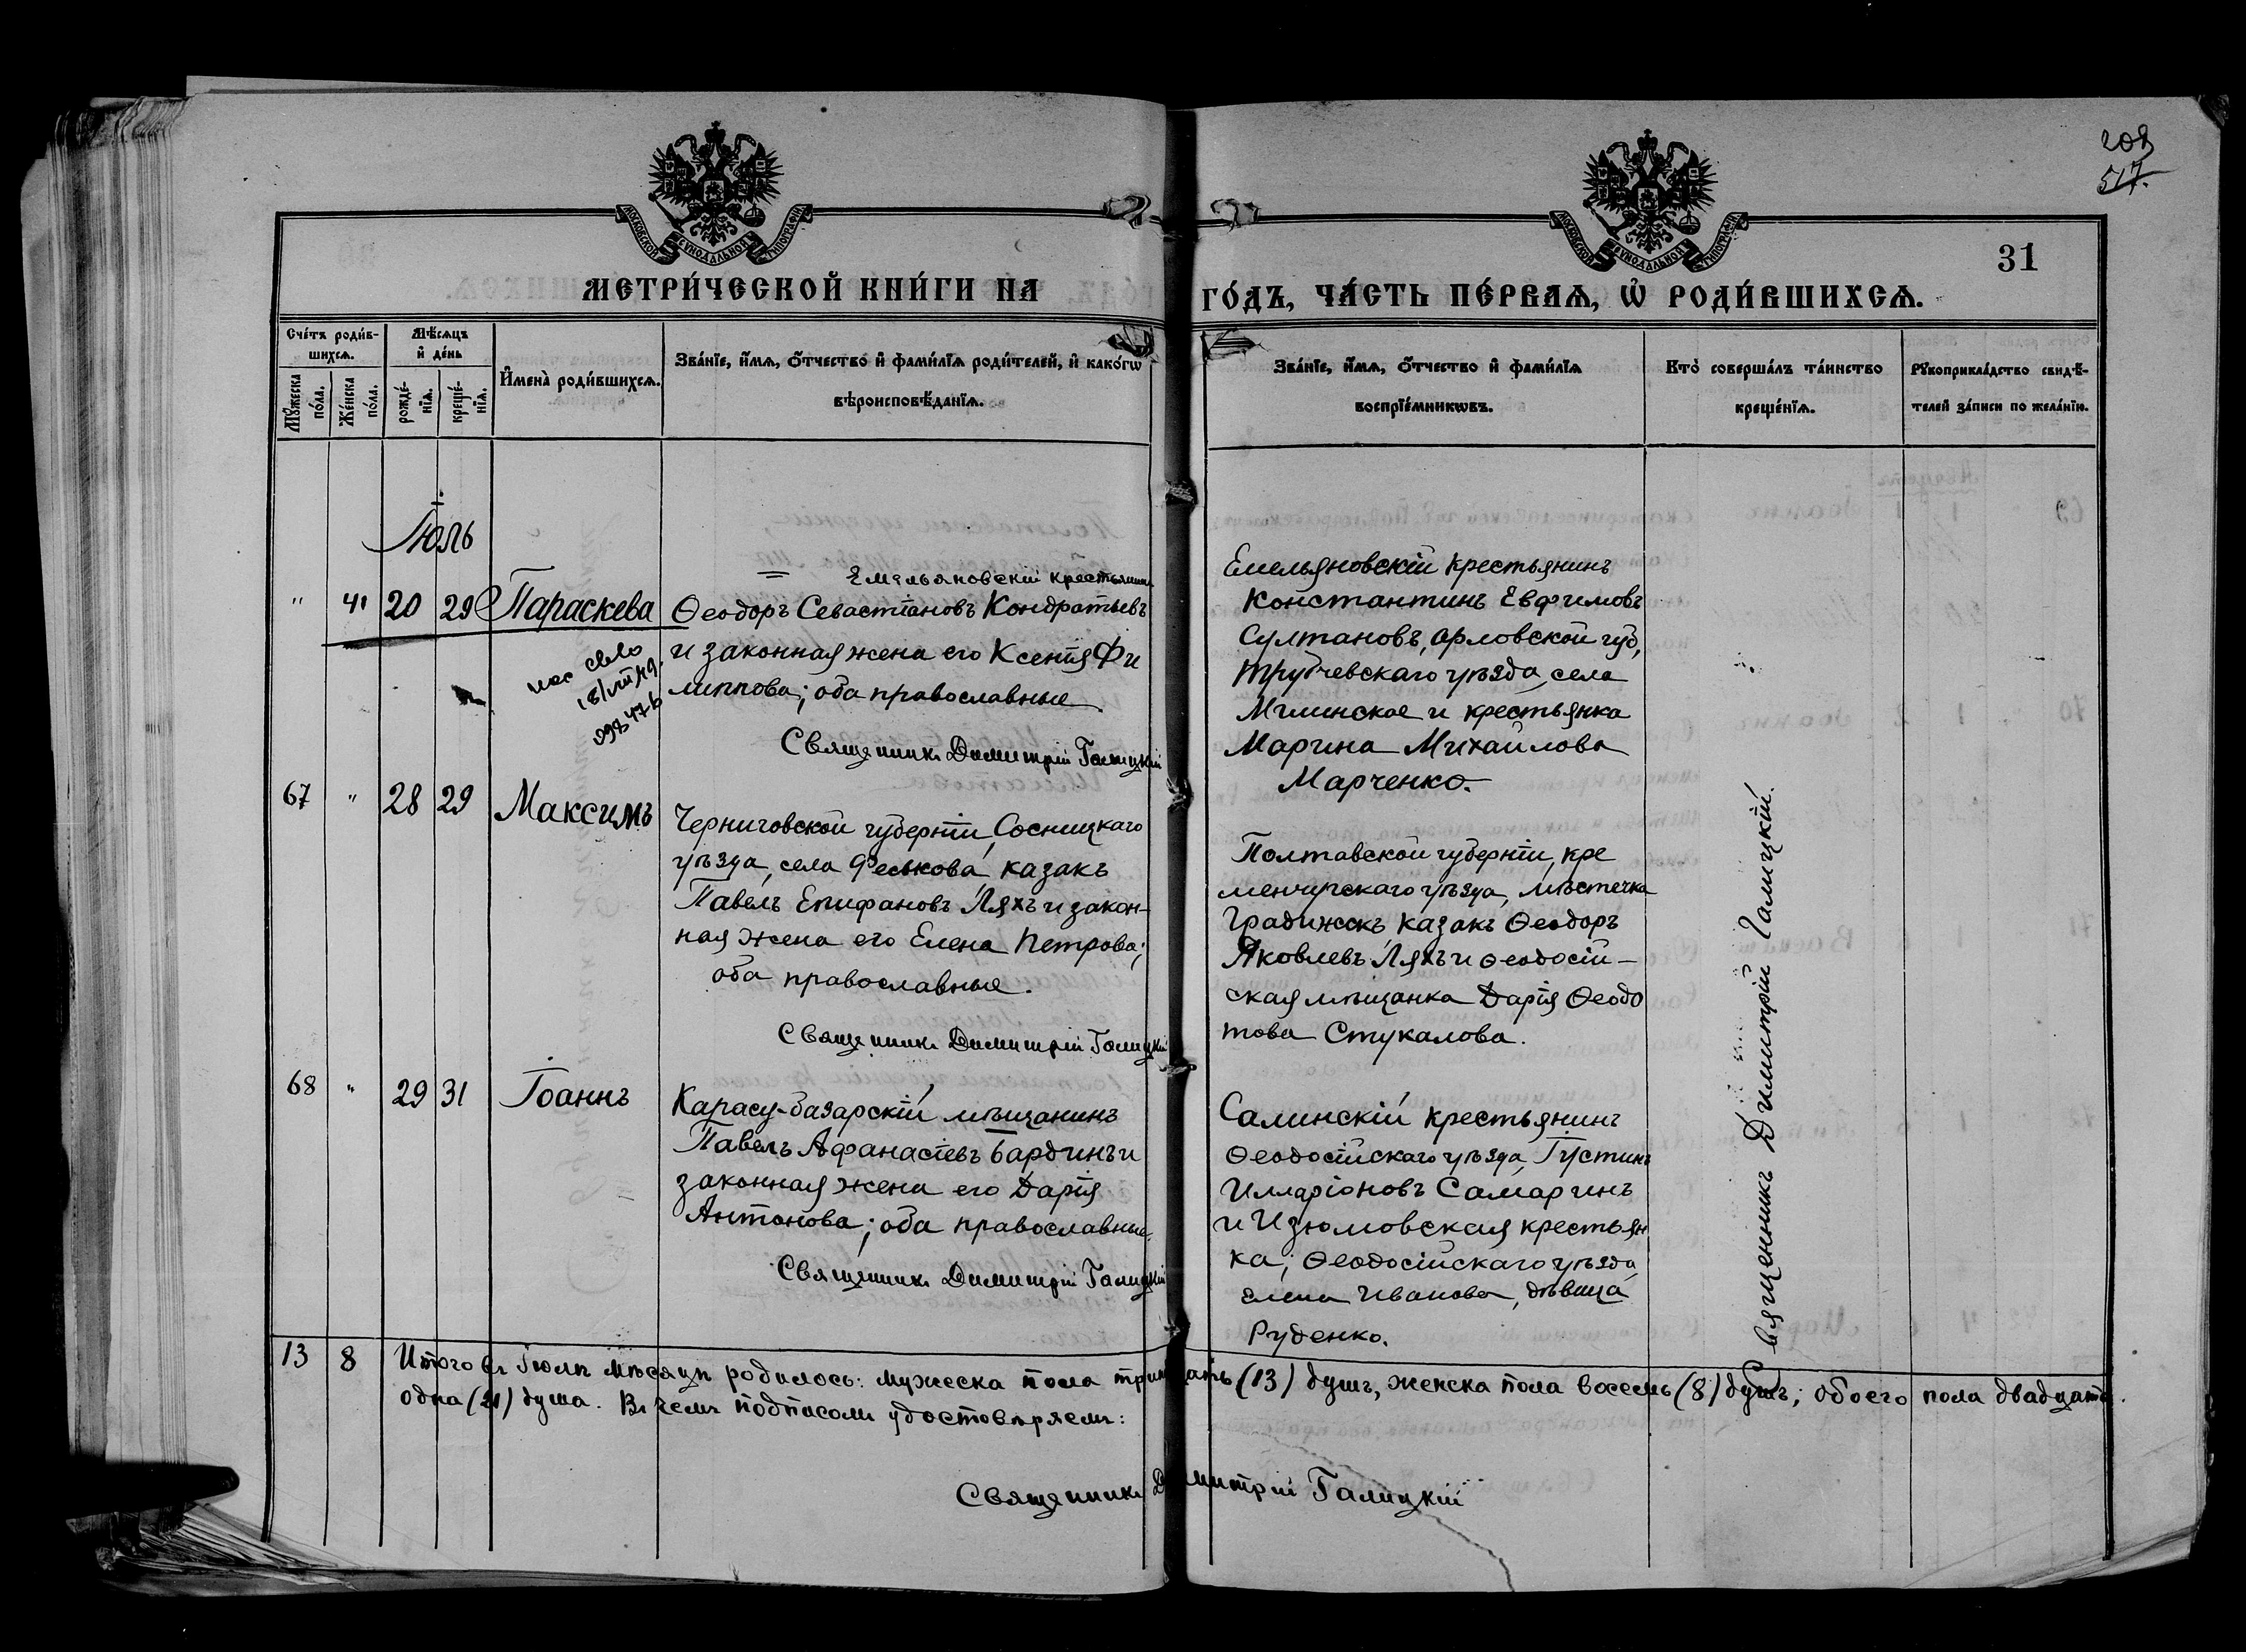 208
517.
МОСКОВСКОЙ СѴНОДАЛЬНОЙ ТИПОГРАФІИ
МОСКОВСКОЙ СѴНОДАЛЬНОЙ ТИПОГРАФІИ
31
МЕТРИ́ЧЕСКОЙ КНИ́ГИ НА
ГО́ДЪ, ЧА́СТЬ ПЕ́РВАѦ, Ѡ҆ РОДИ́ВШИХСѦ.
Сче́тъ роди́в-
шихсѧ.
Мꙋ́жеска по́ла.
Же́нска по́ла.
Мѣ́сѧцъ
и҆ де́нь
рожде́-
нїѧ.
креще́-
нїѧ.
И҆мена̀ роди́вшихсѧ.
Зва́нїе, и҆́мѧ, ѻ҆́тчество и҆ фами́лїѧ роди́телей, и҆ како́гѡ
вѣроисповѣ́данїѧ.
Зва́нїе, и҆́мѧ, ѻ҆́тчество и҆ фами́лїѧ
воспрїе́мникѡвъ.
Кто̀ соверша́лъ та́инство
креще́нїѧ.
Рꙋкоприкла́дство свидѣ́-
телей за́писи по жела́нїю.
Іюль
" 41 20 29 Параскева
Емельяновскій крестьянинъ
Ѳеодоръ Севастіановъ Кондратьевъ
и законная жена его Ксенія Фи
липпова; оба православные.
Священникъ Димитрій Галицкій
Емельяновскій крестьянинъ
Константинъ Евфимовъ
Султановъ, Орловской губ,
Трубчевскаго уѣзда, села
и крестьянка
Марина Михайлова
Марченко.
67 " 28 29 Максимъ
Черниговской губерніи, Сосницкаго
уѣзда, села Феськова казакъ
Павелъ Епифановъ Ляхъ и закон-
ная жена его Елена Петрова;
оба православные.
Священникъ Димитрій Галицкій
Полтавской губерніи, Кре
менчугскаго уѣзда, мѣстечка
Градижскъ казакъ Ѳеодоръ
Яковлевъ Ляхъ и Ѳеодосій-
ская мѣщанка Дарія Ѳеодо
това Стукалова.
68 " 29 31 Іоаннъ
Карасу-базарскій мѣщанинъ
Павелъ Афанасіевъ Бардинъ и
законная жена его Дарія
Антонова; оба православные.
Священникъ Димитрій Галицкій
Салинскій крестьянинъ
Ѳеодосійскаго уѣзда, Іустинъ
Илларіоновъ Самаринъ
и Изюмовская крестьян
ка, Ѳеодосійскаго уѣзда
Елена Иванова, дѣвица
Руденко.
Священникъ Димитрій Галицкій.
13 8 Итого въ Іюлѣ мѣсяцѣ родилось: мужеска пола тринадцать (13) душъ, женска пола восемь (8) душъ; обоего пола двадцать
одна (21) душа. Въ чемъ подписомъ удостовѣряемъ:
Священникъ Димитрій Галицкій